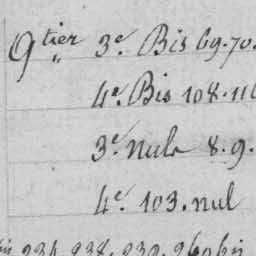 9 tier 3e. Bis 69.70.
4e. Bis 108.11
3e. nul 8.9.
4e. 103.nul
234 238. 239. 260 bis